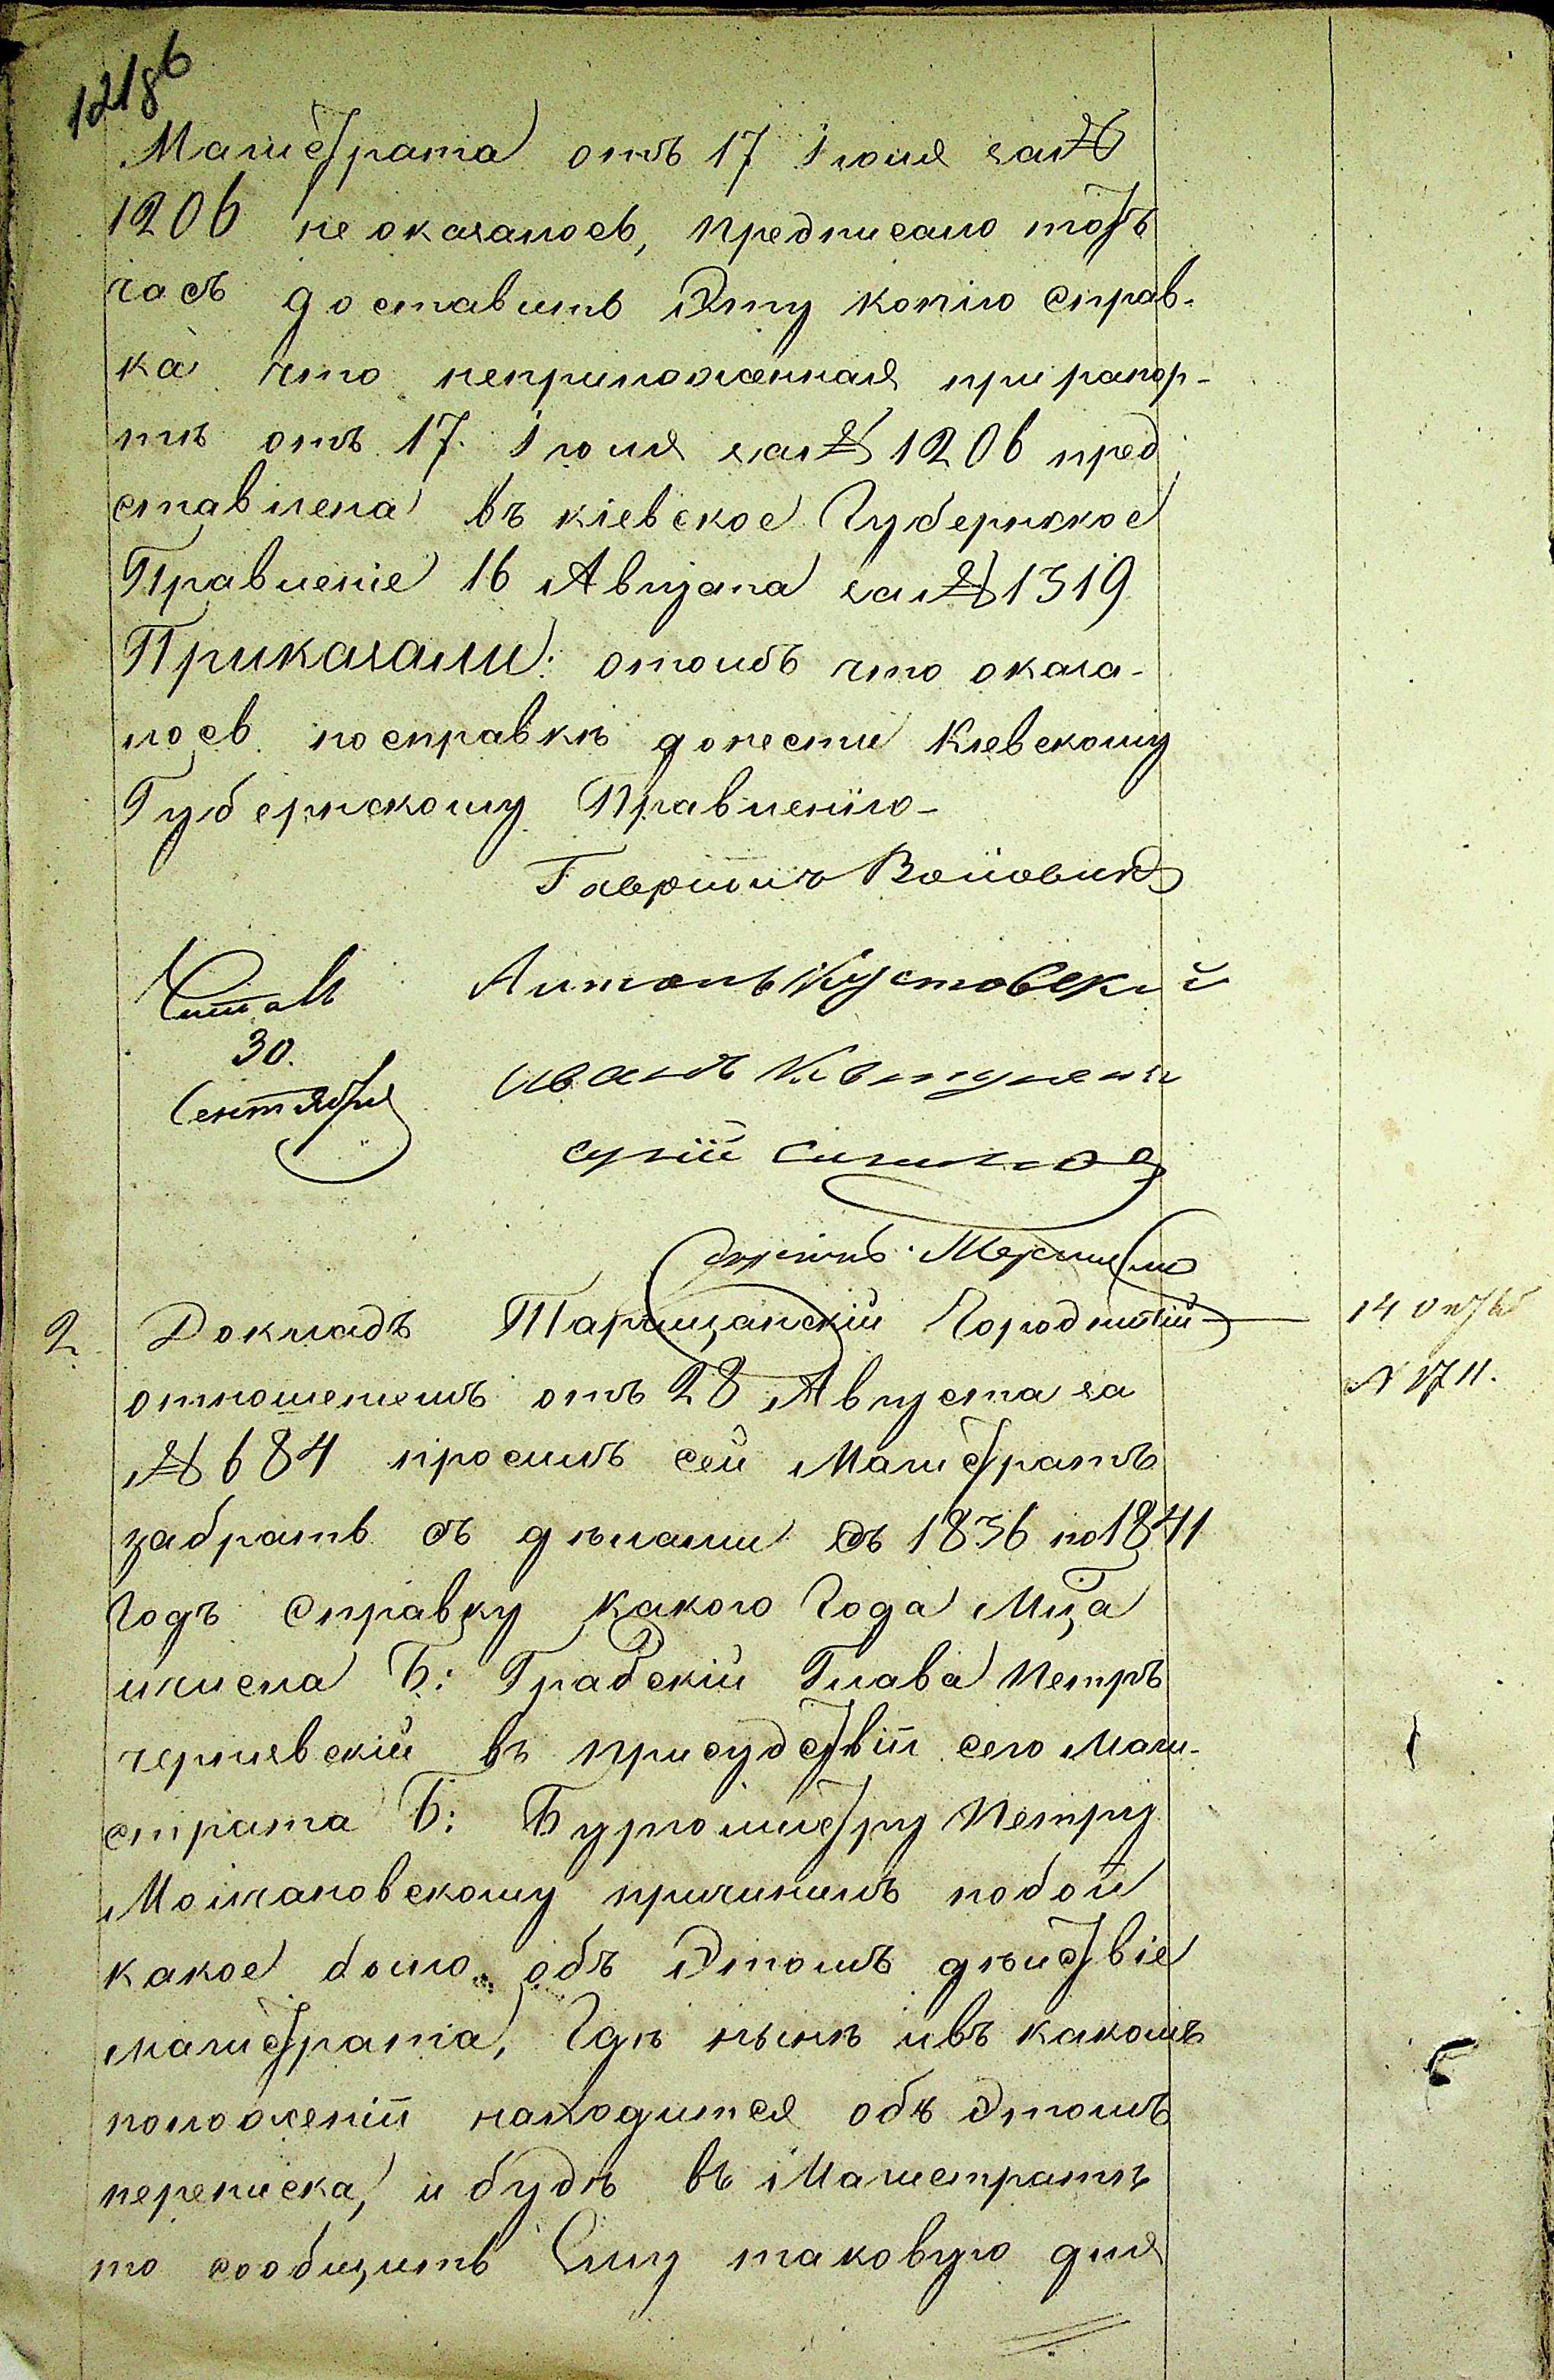 1218б
Магистрата отъ 17 Іюля за №
1206 не оказалось, предписало тот
часъ доставить Эту копію Справ-
ка что неприложенная при рапор-
те отъ 17. Іюля за № 1206 пред
ставлена въ кіевское Губернское
Правленіе 16 Августа за № 1319
Приказали: отомъ что оказа-
лось посправкѣ донести Кіевскому
Губернскому Правленію-
Гаврыилъ
Антонъ Кустовский
Читалъ
30.
Сентября
Иванъ
2. Докладъ Таращанскій Городничій
14 Октяб
№ 1711.
отношенiемъ отъ 28 Августа за
№ 684 проситъ сей Магистратъ
забрать съ дѣлами съ 1836 по 1841
Годъ Справку какого Года Мца
ичисла Б: Градскій Глава Петръ
чернявскій въ присудствіи сего Маги-
страта Б: Бургомистру Петру
Молчановскому причинилъ побои
какое было объ Этомъ дѣйствіе
магистрата, Где нынѣ ивъ какомъ
положеніи находится объ Этомъ
переписка, и будѣ въ Магистратѣ
то сообщить Ему таковую для